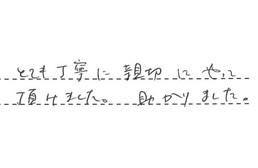 とても丁寧に親切にやって
頂けました。助かりました。